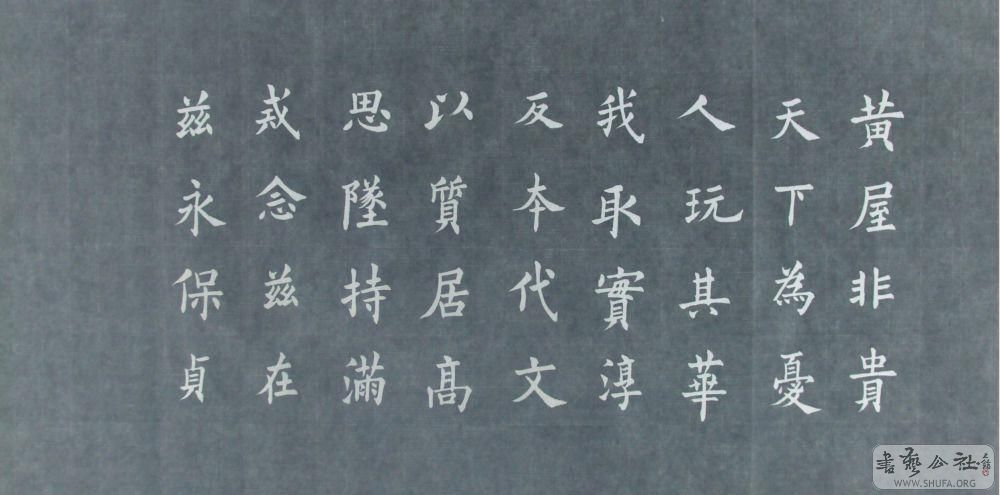 黄屋非貴
天下為憂
人玩其華
我取實淳
反本代文
以質居高
思墜持滿
戒念兹在
兹永保貞
書藝公社
WWW.SHUFA.ORG